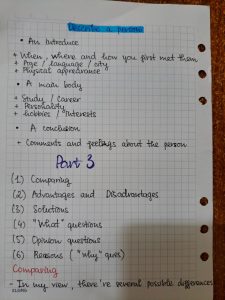 Describe a person
• An introduce
+ When, where and how you first met them
+ Age / language / city
+ Physical appearance
• A main body
+ Study / Career
+ Personality
+ hobbies / interests
• A conclusion
+ Comments and feelings about the person
Part 3
(1) Comparing
(2) Advantages and Disadvantages
(3) Solutions
(4) "What" questions
(5) Opinion questions
(6) Reasons ("Why" ques)
Comparing
- In my view, there're several possible differences